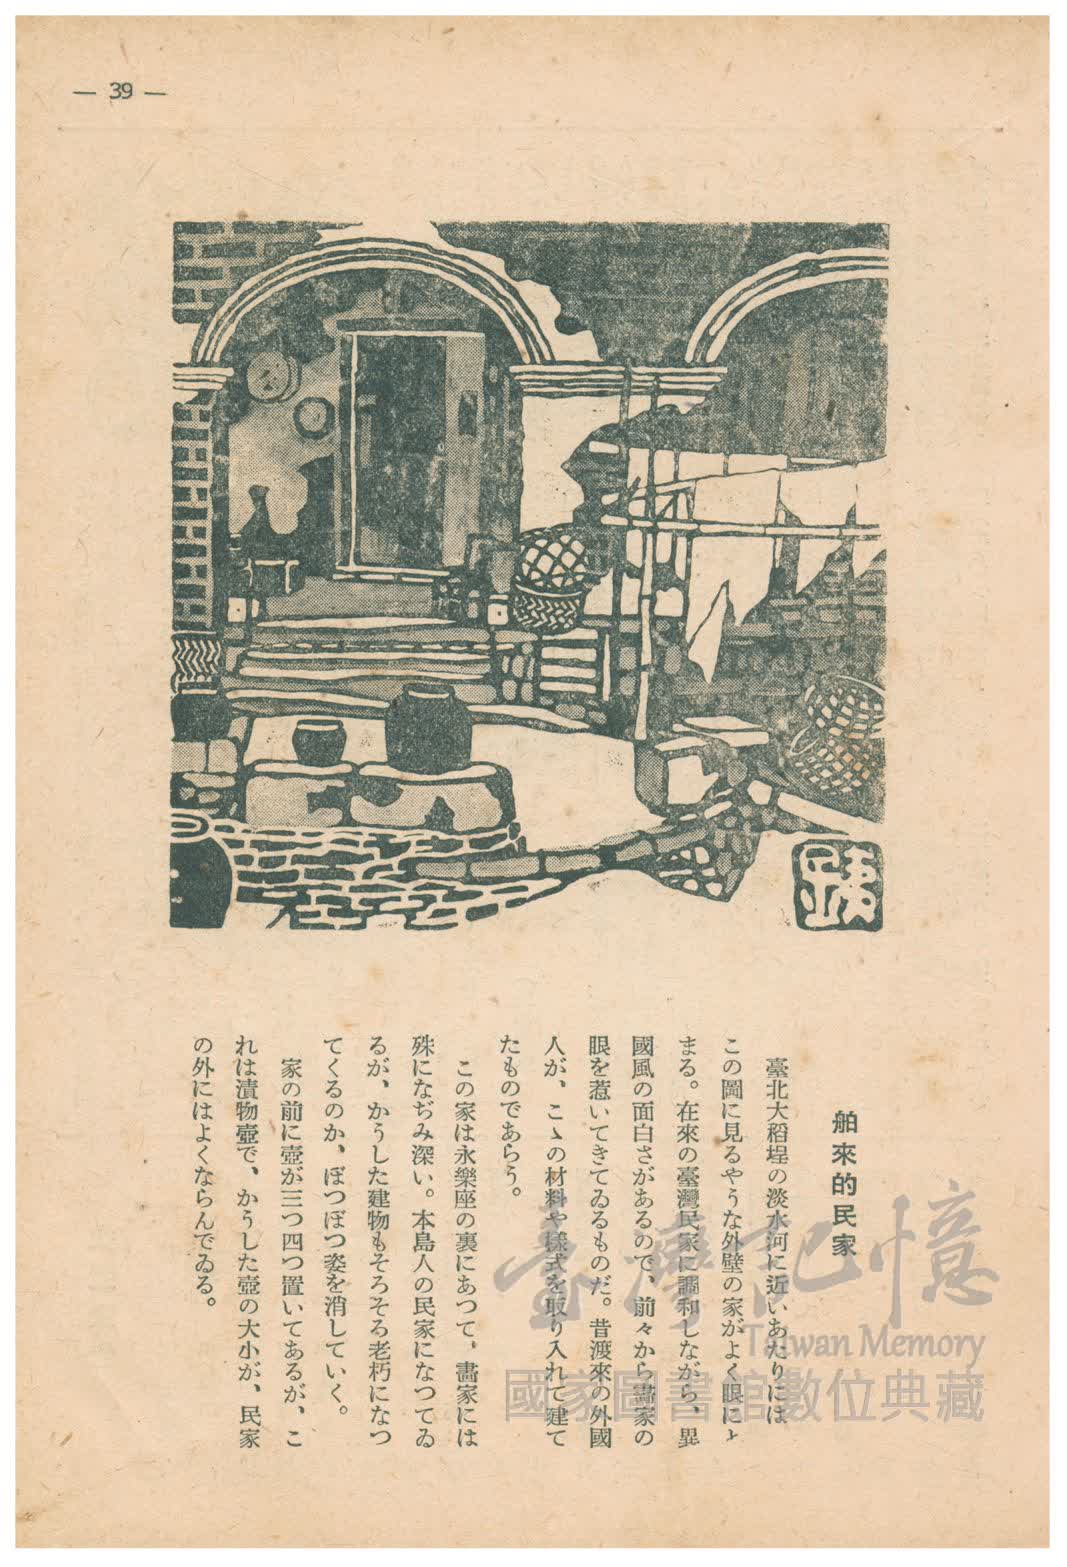 — 39 —
鐵
舶來的民家
臺北大稻埕の淡水河に近いあたりには
この圖に見るやうな外壁の家がよく眼にと
まる。在來の臺灣民家に調和しながら、異
國風の面白さがあるので、前々から畵家の
眼を惹いてきてゐるものだ。昔渡來の外國
人が、こゝの材料や樣式を取り入れて建て
たものであらう。
この家は永樂座の裏にあつて、畵家には
殊になぢみ深い。本島人の民家になつてゐ
るが、かうした建物もそろそろ老朽になつ
てくるのか、ぼつぼつ姿を消していく。
家の前に壺が三つ四つ置いてあるが、こ
れは漬物壺で、かうした壺の大小が、民家
の外にはよくならんでゐる。
臺灣記憶
Taiwan Memory
國家圖書館數位典藏